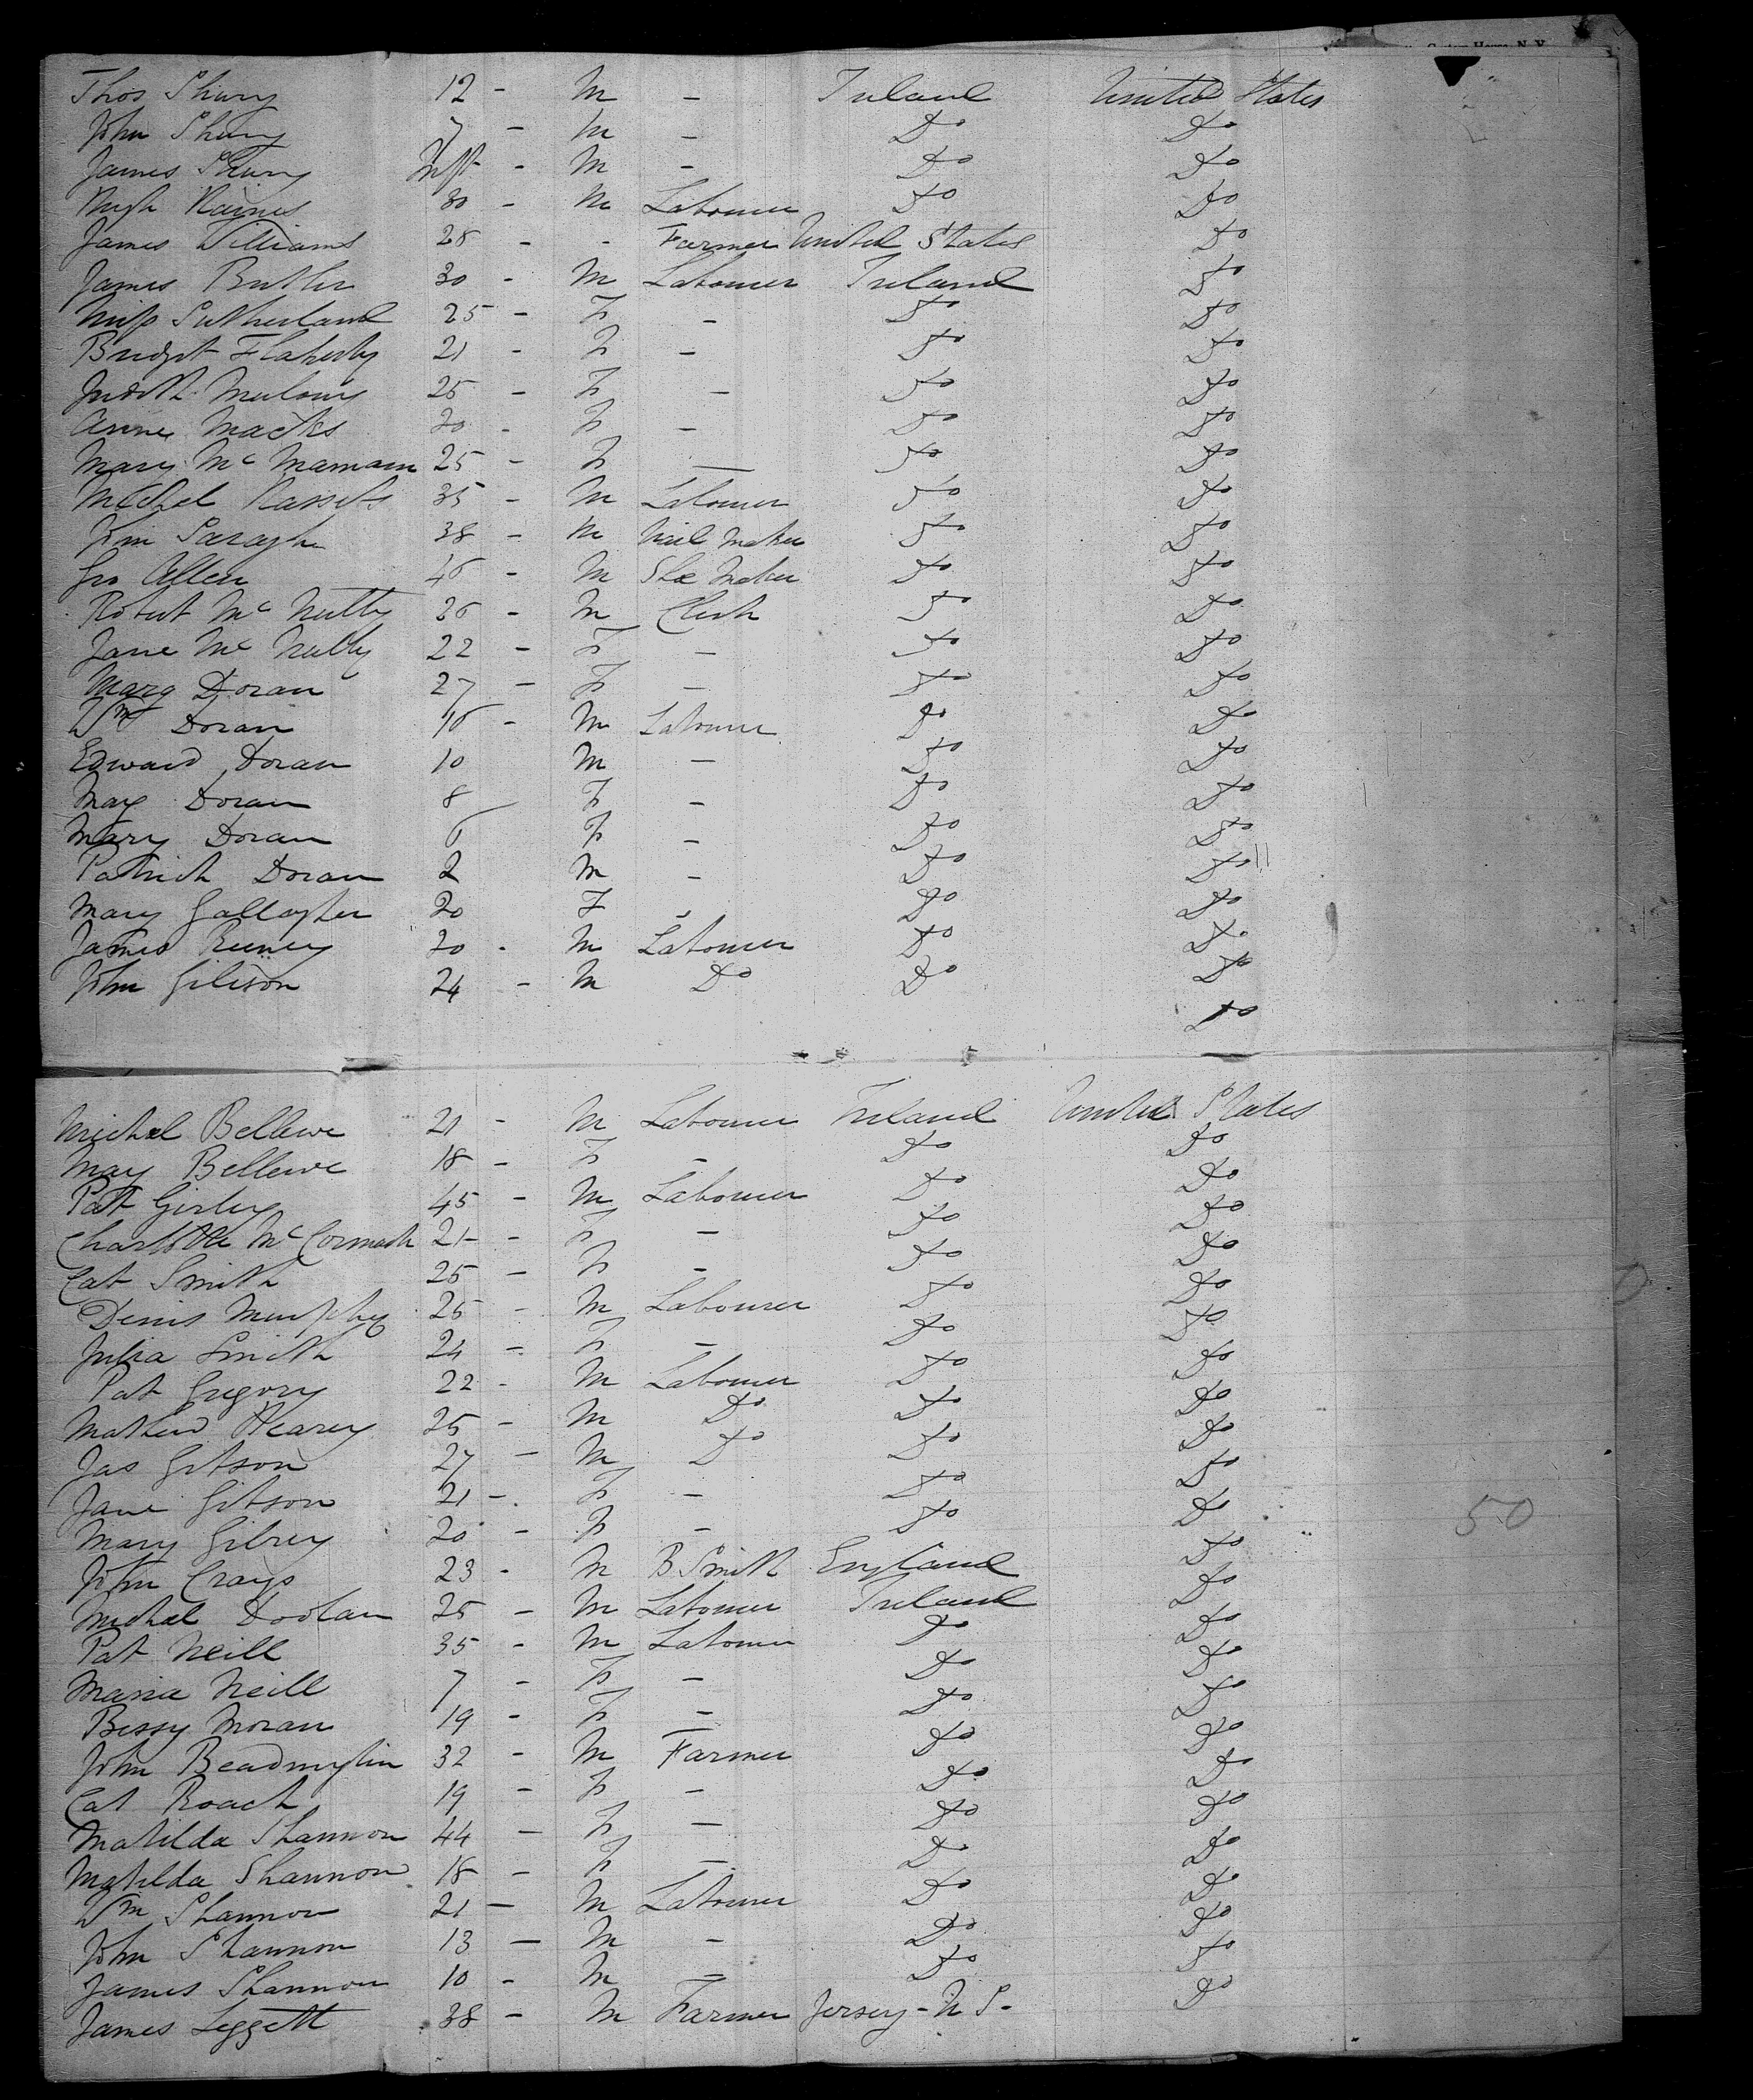 Custom House, N.Y.
Thos 12 - M - Ireland United States
John 7 - M - Do Do
James Inft - M - Do Do
Hugh 30 - M Labourer Do Do
James Williams 28 - - Farmer United States Do
James Butler 30 - M Labourer Ireland Do
Miss Sutherland 25 - F - Do Do
Bridget Flaherty 21 - F - Do Do
Judith 25 - F - Do Do
Anne Macks 20 - F - Do Do
Mary Mc 25 - F - Do Do
Michel 35 - M Labourer Do Do
John 38 - M Nail Maker Do Do
Allen M Shoe Maker Do Do
Robert Mc Nully 26 - M Clerk Do Do
Jane Mc Nully 22 - F - Do Do
Marg Doran 27 - F - Do Do
Wm Doran 16 - M Labourer Do Do
Edward Doran 10 M - Do Do
May Doran 8 F - Do Do
Mary Doran 6 F - Do Do
Patrick Doran 2 M - Do Do
Mary Gallagher 20 F - Do Do
James 20 - M Labourer Do Do
John 24 - M Do Do Do
Do
Michel Bellewe 21 - M Labourer Ireland United States
May Bellewe 18 - F - Do Do
Patt 45 - M Labourer Do Do
Charlotte Mc Cormack 21 - F - Do Do
Cat Smith 25 - F - Do Do
Denis Murphy 25 - M Labourer Do Do
Julia Smith 24 - F - Do Do
Pat Gregory 22 - M Labourer Do Do
Mathew 25 - M Do Do Do
Jas Gibson 27 - M Do Do Do
Jane Gibson 21 - F - Do Do
Mary 20 - F - Do Do
John Craigs 23 - M B Smith England Do
Michel Doolan 25 - M Labourer Ireland Do
Pat Neill 35 - M Labourer Do Do
Maria Neill 7 - F - Do Do
Bessy Moran 19 - F - Do Do
John 32 - M Farmer Do Do
Cat Roach 19 - F - Do Do
Matilda Shannon 44 - F - Do Do
Matilda Shannon 18 - F - Do Do
Wm Shannon 21 - M Labourer Do Do
John Shannon 13 - M - Do Do
James Shannon 10 - M - Do Do
James Leggett 38 - M Farmer Jersey - U S - Do
50